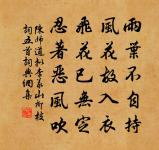 雨葉不自持
風花故入衣
飛花已無定
忍著惡風吹
陳師道和李義山柳枝
詞五首詞典網集